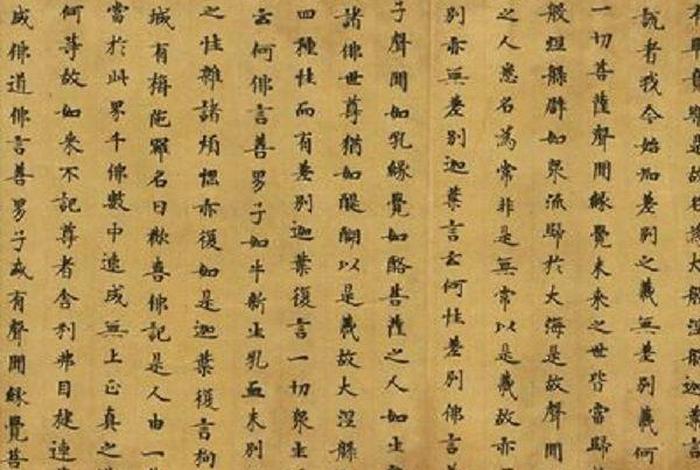 說者我今始知差別之義無差別義何
一切菩薩聲聞緣覺未來之世皆當歸
般涅槃譬如眾流歸於大海是故聲聞
之人悉名為常非是無常以是義故亦
別亦無差別迦葉言云何性差別佛言善
子聲聞如乳緣覺如酪菩薩之人如生
諸佛世尊猶如醍醐以是義故大涅槃
四種性而有差別迦葉復言一切眾生
云何佛言善男子如牛新生乳血未別
之性雜諸煩惱亦復如是迦葉復言拘
城有栴陀羅名曰歡喜佛記是人由一
當於此界千佛數中速成無上正真之
何等故如來不記尊者舍利弗目揵連
成佛道佛言善男子或有聲聞緣覺菩